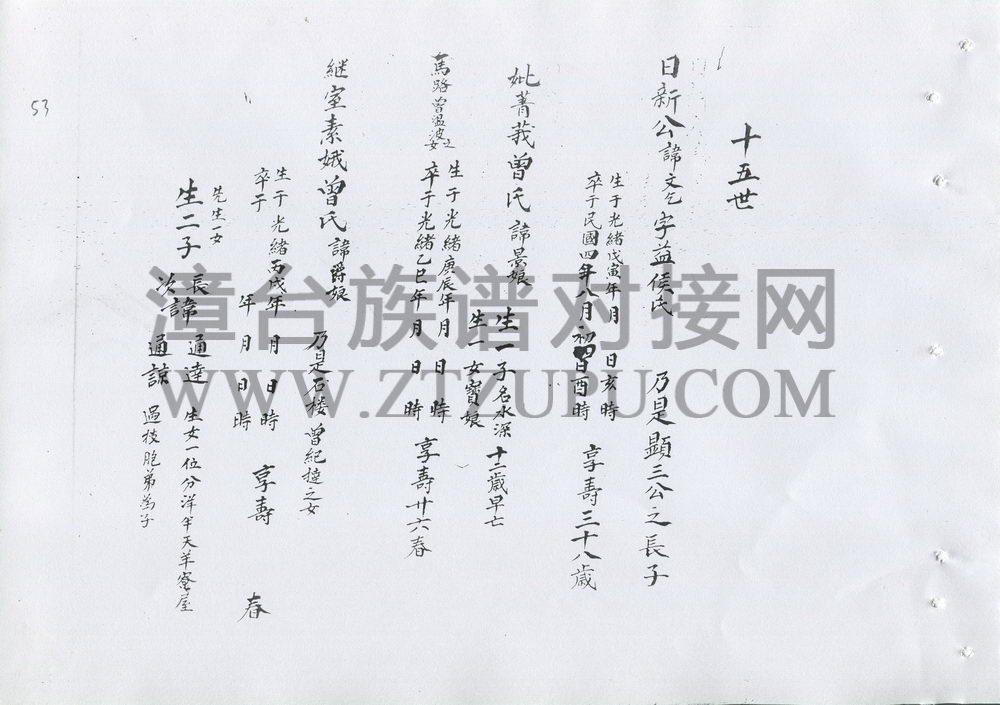 十五世
日新公 諱文乞 字益侯氏 乃是顯三公之長子
生于光緒戊寅年 月 日亥時
卒于民國四年八月初 日酉時 享壽三十八歲
妣菁莪曾氏諱景娘 生一子名水深 十二歲早亡
生一女寶娘
馬路曾溫波之女
生于光緒庚辰年 月 日 時
卒于光緒乙巳年 月 日 時 享壽廿六春
継室素娥曾氏諱爵娘 乃是石楼曾紀撻之女
生于光緒丙戌年 月 日 時
卒于 年 月 日 時 享壽 春
先生一女
生二子 長諱通達 生女一位分洋半天羊寮屋
次諱通諒 過枝胞弟為子
53
漳台族谱对接网
WWW.ZTZUPU.COM